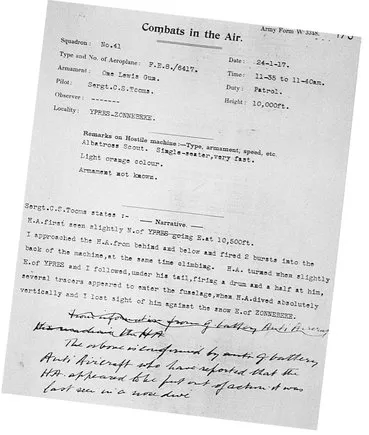 Combats in the Air.
Army Form W 3348.
Squadron: No.41
Date: 24-1-17.
Type and No. of Aeroplane: F.E.8./6417.
Time: 11-35 to 11-40am.
Armament: One Lewis Gun.
Duty: Patrol.
Pilot: Sergt.C.S.Tooms.
Height: 10,000ft.
Observer: -------
Locality: YPRES-ZONNEBEKE.
Remarks on Hostile machine:—Type, armament, speed, etc.
Albatross Scout. Single-seater,very fast.
Light orange colour.
Armament not known.
Narrative.
Sergt.C.S.Tooms states :-
H.A.first seen slightly N.of YPRES going E.at 10,500ft.
I approached the H.A.from behind and below and fired 2 bursts into the
back of the machine,at the same time climbing. H.A. turned when slightly
E.of YPRES and I followed,under his tail,firing a drum and a half at him,
several tracers appeared to enter the fuselage,when H.A.dived absolutely
vertically and I lost sight of him against the snow E.of ZONNEBEKE.
from G battery Anti Aircraft
the HA
The above is confirmed by G battery
Anti Aircraft who have reported that the
HA appeared to be put out of action & was
last seen in a nose dive